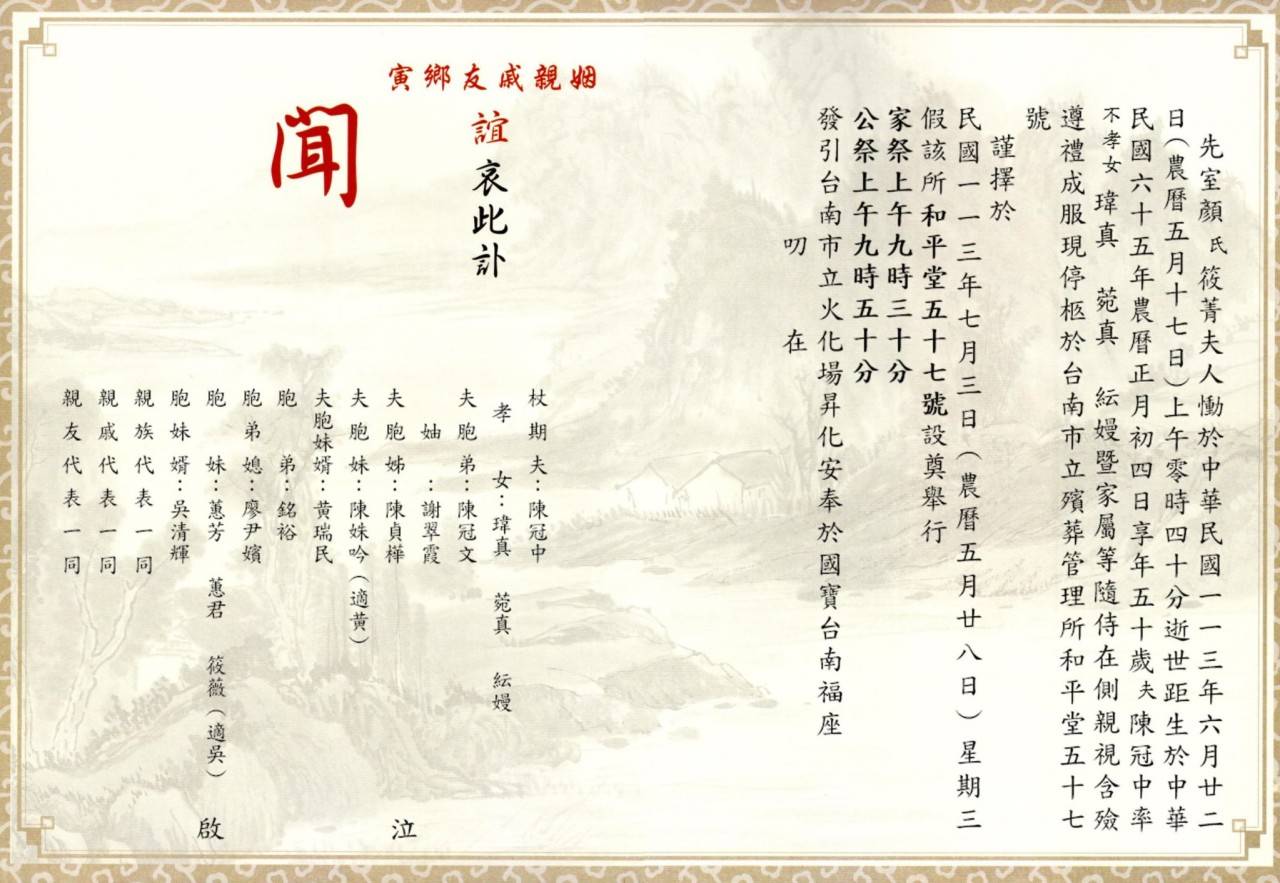 先室顏氏筱菁夫人慟於中華民國一一三年六月廿二
日(農曆五月十七日)上午零時四十分逝世距生於中華
民國六十五年農曆正月初四日享年五十歲夫陳冠中率
不孝女 瑋真 菀真 紜嫚暨家屬等隨侍在側親視含殮
遵禮成服現停柩於台南市立殯葬管理所和平堂五十七
號
謹擇於
民國一一三年七月三日(農曆五月廿八日)星期三
假該所和平堂五十七號設奠舉行
家祭上午九時三十分
公祭上午九時五十分
發引台南市立火化場昇化安奉於國寶台南福座
叨 在
姻親戚友鄉寅
誼哀此訃
聞
杖期夫:陳冠中
孝女:瑋真 菀真 紜嫚
夫胞弟:陳冠文
妯:謝翠霞
夫胞姊:陳貞樺
夫胞妹:陳姝吟(適黃)
夫胞妹婿:黃瑞民
胞弟:銘裕
胞弟媳:廖尹嬪
胞妹:蕙芳 蕙君 筱薇(適吳)
胞妹婿:吳清輝
親族代表一同
親戚代表一同
親友代表一同
泣
啟